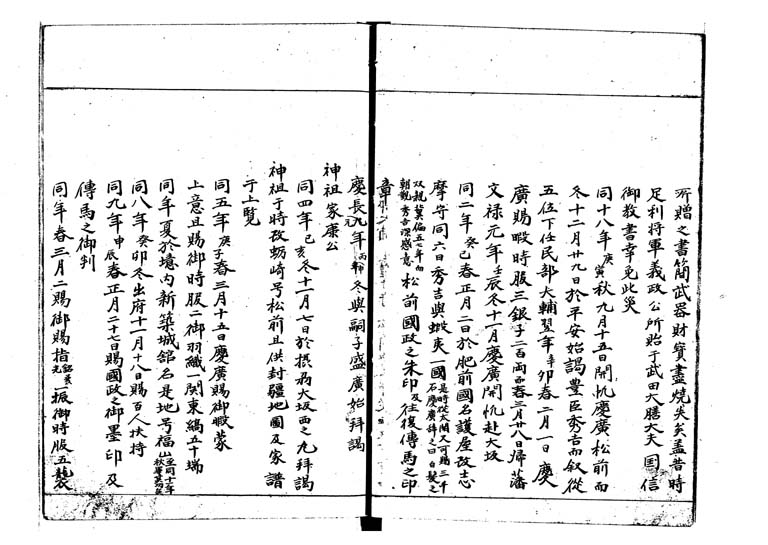 所贈之書簡武器財寳盡燒失矣盖昔時
足利将軍義政公所貽于武田大膳大夫國信
御教書幸免此災
同十八年庚寅秋九月十五日開帆慶廣松前而
冬十二月廿九日於平安始謁豊臣秀吉而叙從
五位下任民部大輔翌年辛卯春二月一日慶
廣賜暇時服三銀子二百両春三月廿八日帰藩
文禄元年壬辰冬十一月慶廣開帆赴大坂
同二年癸巳春正月二日於肥前國名護屋改志
摩守同六日秀吉與蝦夷一國
松前國政之朱印及往復傳馬之印
章
慶長元年丙申冬與嗣子盛廣始拜謁
神祖家康公
同四年己亥冬十一月七日於摂劦大坂西之丸拜謁
神祖于時改蛎崎号松前且供封疆地圖及家譜
于上覧
同五年庚子春三月十五日慶廣賜御暇蒙
上意且賜御時服二御羽織一関東縞五十端
同年夏於境内新築城舘名是地号福山
同八年癸卯冬出府十一月十八日賜百人扶持
同九年甲辰春正月二十七日賜國政之御墨印及
傳馬之御判
同年春三月二賜御賜指一振御時服五襲